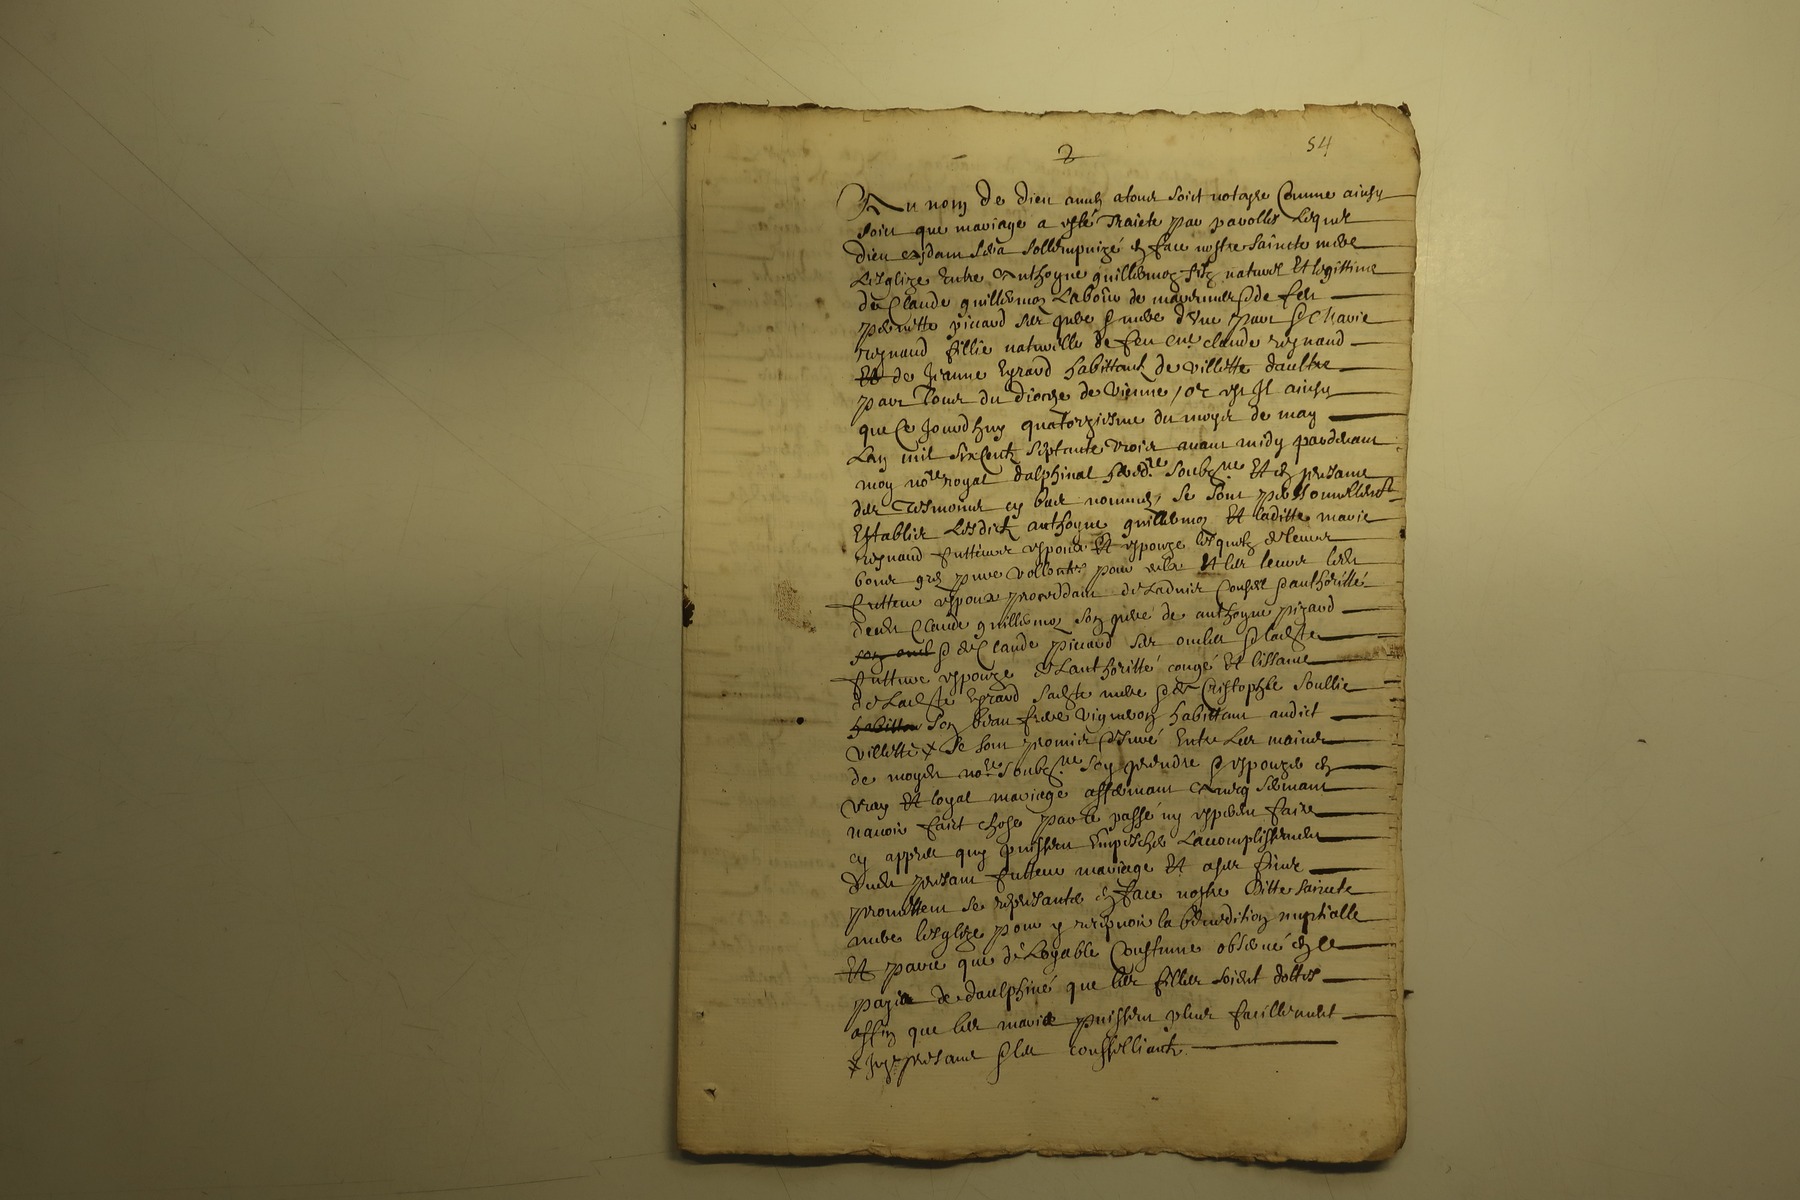 2
54
Au nom de dieu amen a tous soict notoyre Comme ainsy
soict que mariage a esté Traicte par parolles Lesquel
dieu aydant sera sollempnizé en face nostre saincte mere
Lesglize Entre Anthoyne guillermoz filz naturel Et legittime
de Claude guillermoz Laboureur de et de feu
pernette picaud ses pere et mere d'une part Et Marie
reynaud fillie naturelle de feu claude reynaud
de Jeanne Eyraud habittant de villette daultre
part Tous du dioceze de Vienne / or est Il ainsy
que Ce Jourdhuy quatorziesme du moys de may
Lan mil six Centz septante trois avant midy pardevant
moy nore royal dalphinal heredre soubzne Et en presance
des Tesmoins cy bas nommes, se sont personnellement
Establis Lesdictz anthoyne guillermoz Et laditte marie
reynaud futteurs espoux Et espouze lesquelz de leurs
bons gres pure vollontes pour eulx Et les leurs ledit
futteur espoux proceddant de Ladvis Conseil et authoritté
dudit Claude guillermoz son pere de anthoyne picaud
son oncl et de Claude picaud ses oncles et ladite
futture espouze de Lauthoritté congé Et lissance
de Ladite Eyraud sadite mere et de Cristophle soullie
habitta son beau frere vigneron habittant audict
villette x se sont promis et Juré Entre Les mains
de moydit nore soubzne soy prendre et espouzer en
vray Et loyal mariage affermant Avecq serment
navoir faict chose par le passé ny esperer faire
cy appres quy puissent Empescher Laccomplissement
dudit presant futteur mariage Et a ses fins
promettent se representer en face nostre ditte saincte
mere lesglize pour y recepvoir la benediction nuptialle
Et parce que de Loyable Coustume observé en ce
paÿs de daulphiné que les filles soient dottes
affin que les maris puissent plus facillement
x presant et les conseilliantz